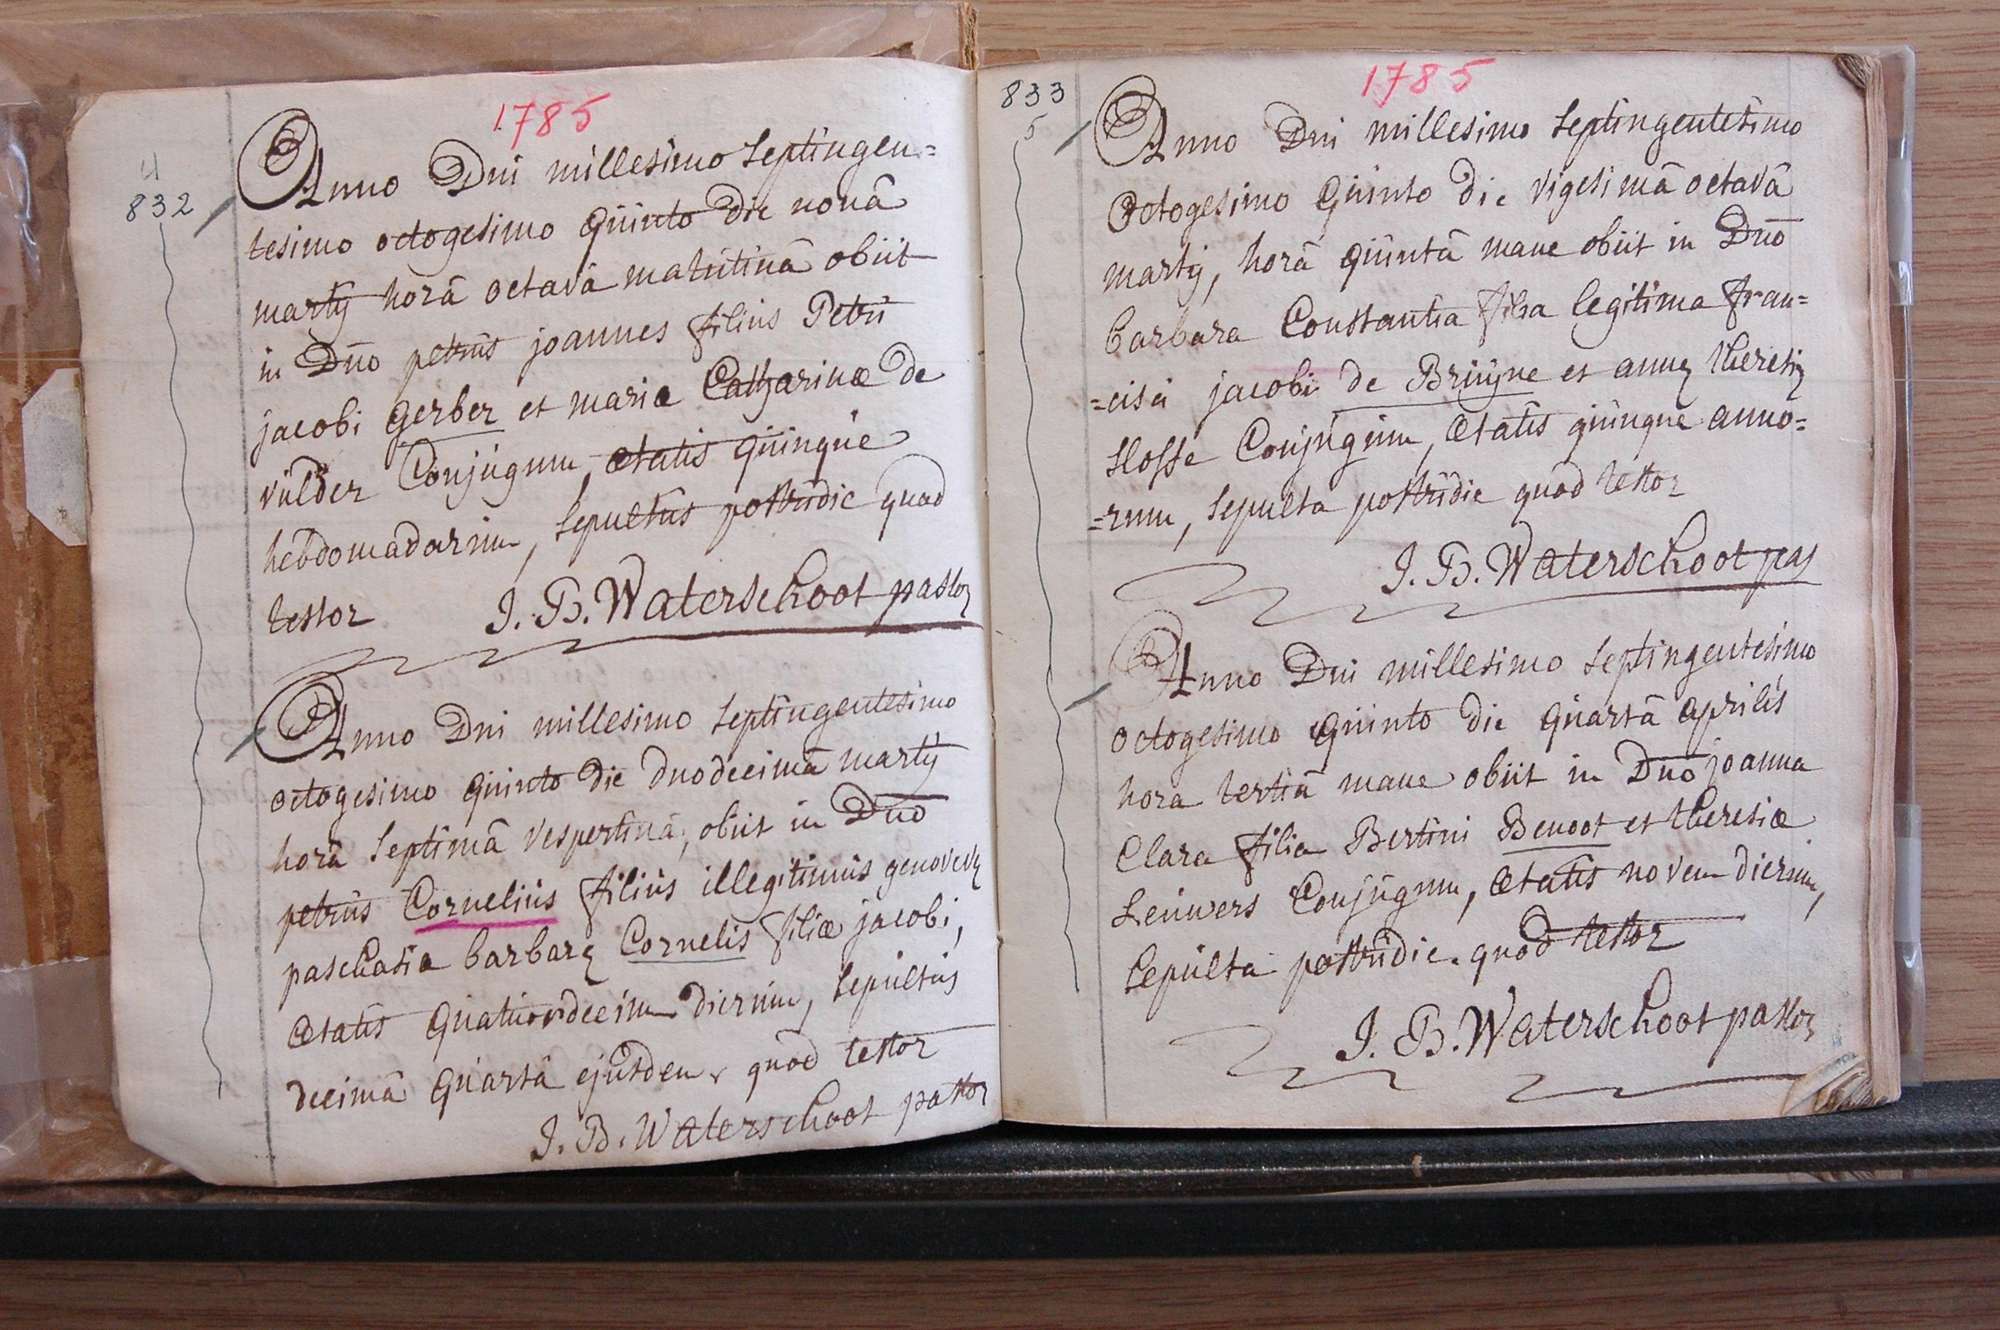 1785
4
832
Anno Dni millesimo septingen=
tesimo octogesimo quinto die nonâ
martÿ horâ octavâ matutinâ obiit
in Dno petrus joannes filius Petri
jacobi gerber et mariæ Catharinæ de
vülder Conjugum, ætatis quinque
hebdomadarum, sepultus postridie quod
testor J. B. Waterschoot pastor
Anno Dni millesimo septingentesimo
octogesimo quinto die duodecimâ martÿ
horâ septimâ vespertinâ, obiit in Dno
petrus Cornelius filius illegitimus genovevæ
paschasia barbaræ Cornelis filiæ jacobi,
ætatis quatuordecim dierum, sepultus
decimâ quartâ ejusdem, quod testor
J. B. Waterschoot pastor
1785
833
5
Anno Dni millesimo septingentesimo
octogesimo quinto die vigesimâ octavâ
martÿ, horâ quintâ mane obiit in Dno
barbara Constantia filia legitima fran=
=cisci jacobi de Bruÿne et annæ theresiæ
slosse Conjugum, ætatis quinque anno=
=rum, sepulta postridie quod testor
J. B. Waterschoot pas
Anno Dni millesimo septingentesimo
octogesimo quinto die quartâ aprilis
hora tertiâ mane obiit in Dno joanna
Clara filia Bertini Benoot et theresiæ
Leuwers Conjugum, ætatis novem dierum,
sepulta postridie. quod testor
J. B. Waterschoot pastor